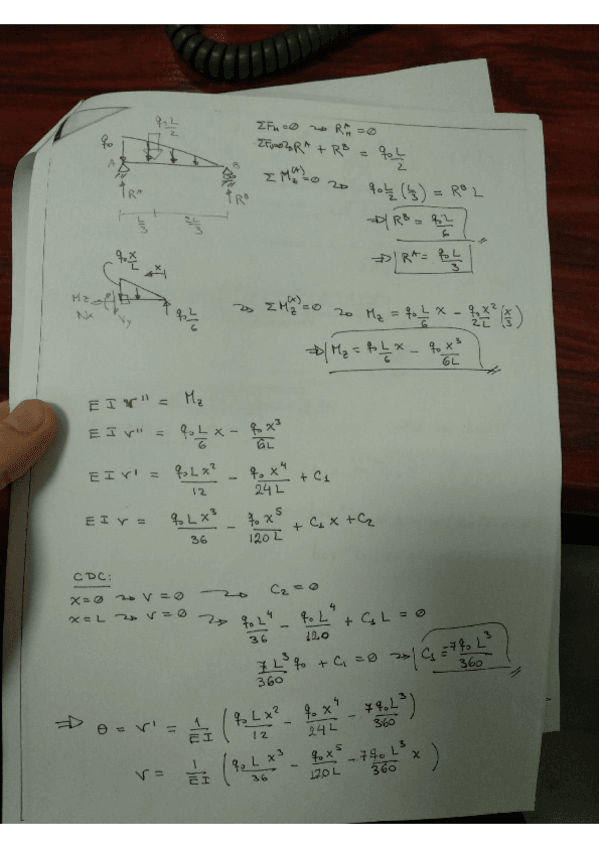 q₀L/2
q₀
A B
R^A R^B
L/3 2L/3
ΣF_H=0 ⇝ R_H^A=0
R^A + R^B = q₀L/2
ΣM_z^(A)=0 ⇝ q₀L/2 (L/3) = R^B L
⇒ R^B = q₀L/6
⇒ R^A = q₀L/3
q₀x/L x
M_z N_x V_y q₀L/6
⇝ ΣM_z^(x)=0 ⇝ M_z = q₀L/6 x - q₀x²/2L (x/3)
⇒ M_z = q₀L/6 x - q₀x³/6L
EIv'' = M_z
EIv'' = q₀L/6 x - q₀x³/6L
EIv' = q₀Lx²/12 - q₀x⁴/24L + C₁
EIv = q₀Lx³/36 - q₀x⁵/120L + C₁x + C₂
CDC:
x=0 ⇝ v=0 ⇝ C₂=0
x=L ⇝ v=0 ⇝ q₀L⁴/36 - q₀L⁴/120 + C₁L = 0
7L³/360 q₀ + C₁ = 0 ⇝ C₁ = -7q₀L³/360
⇒ θ = v' = 1/EI (q₀Lx²/12 - q₀x⁴/24L - 7q₀L³/360)
v = 1/EI (q₀Lx³/36 - q₀x⁵/120L - 7q₀L³/360 x)